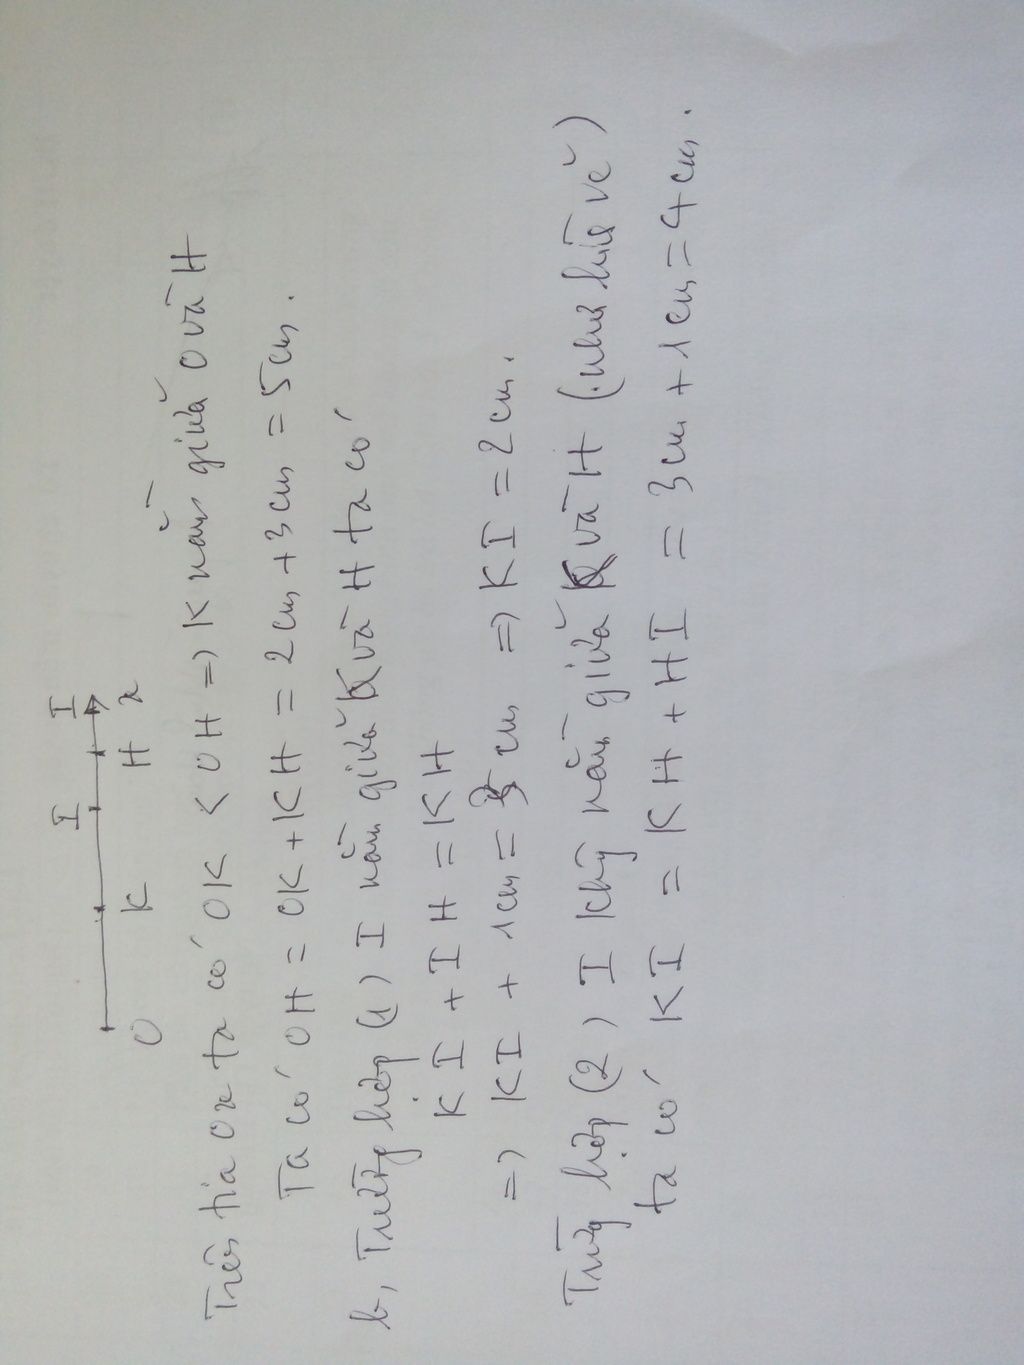 I I
O K H x
Trên tia Ox ta có OK < OH => K nằm giữa O và H
Ta có OH = OK + KH = 2cm + 3cm = 5cm.
b, Trường hợp (1) I nằm giữa K và H ta có
KI + IH = KH
=> KI + 1cm = 3cm => KI = 2cm.
Trường hợp (2) I không nằm giữa K và H (như hình vẽ)
ta có KI = KH + HI = 3cm + 1cm = 4cm.